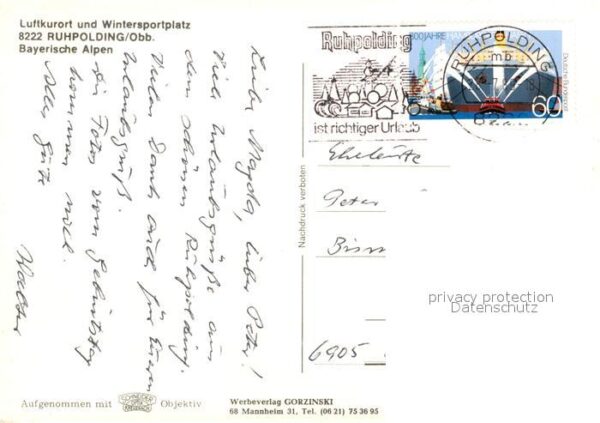 Luftkurort und Wintersportplatz
8222 RUHPOLDING/Obb.
Bayerische Alpen
Liebe Magda, lieber Peter!
Viele Urlaubsgrüße aus
dem schönen Ruhpolding.
Vielen Dank auch für Euren
Urlaubsgruß.
Die Fotos vom Geburtstag
kommen noch.
Alles Gute
Walter
Ruhpolding
ist richtiger Urlaub
800 JAHRE HAFEN
Deutsche Bundespost
60
RUHPOLDING
mb
8222
Nachdruck verboten
Eheleute
Peter
6905
privacy protection
Datenschutz
Aufgenommen mit SCHNEIDER KREUZNACH Objektiv
Werbeverlag GORZINSKI
68 Mannheim 31, Tel. (06 21) 75 36 95